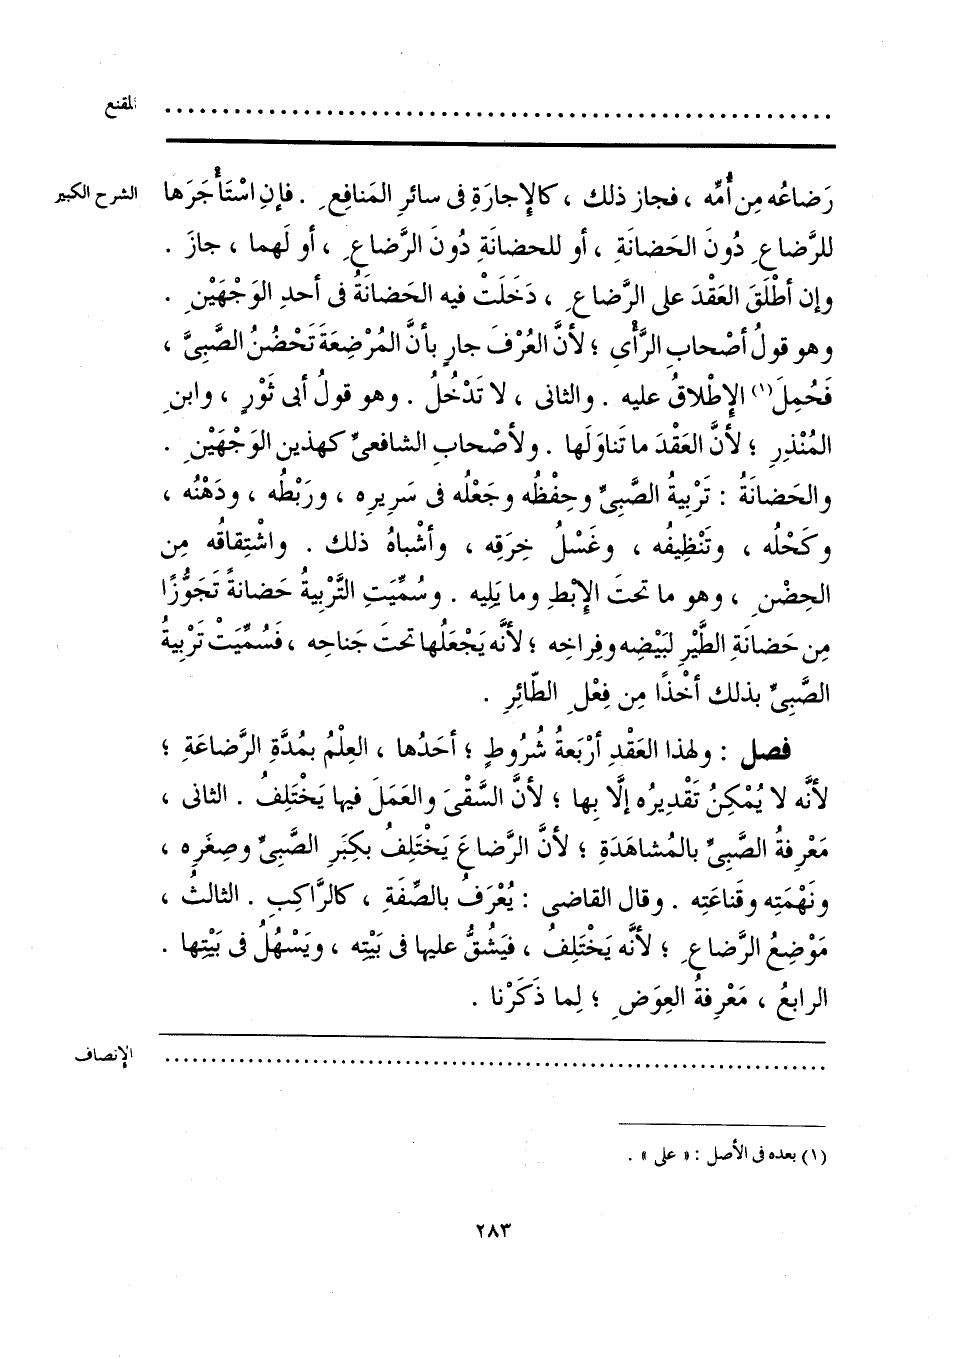 المقنع
رَضاعُه مِن أُمِّه ، فجاز ذلك ، كالإِجارَةِ فى سائرِ المَنافِعِ . فإنِ اسْتَأْجَرَها
الشرح الكبير
للرَّضاعِ دُونَ الحَضانَةِ ، أو للحضانَةِ دُونَ الرَّضاعِ ، أو لَهما ، جازَ .
وإن أطْلَقَ العَقْدَ على الرَّضاعِ ، دَخَلَتْ فيه الحَضانَةُ فى أحدِ الوَجْهَيْنِ .
وهو قولُ أصْحابِ الرَّأْىِ ؛ لأنَّ العُرْفَ جارٍ بأنَّ المُرْضِعَةَ تَحْضُنُ الصَّبِىَّ ،
فَحُمِلَ(١) الإِطْلاقُ عليه . والثانى ، لا تَدْخُلُ . وهو قولُ أبى ثَوْرٍ ، وابنِ
المُنْذِرِ ؛ لأنَّ العَقْدَ ما تَناوَلَها . ولأصْحابِ الشافعىِّ كهذين الوَجْهَيْنِ .
والحَضانَةُ : تَرْبِيةُ الصَّبِىِّ وحِفْظُه وجَعْلُه فى سَرِيرِه ، ورَبْطُه ، ودَهْنُه ،
وكَحْلُه ، وتَنْظِيفُه ، وغَسْلُ خِرَقِه ، وأشْباهُ ذلك . واشْتِقاقُه مِن
الحِضْنِ ، وهو ما تحتَ الإِبْطِ وما يَلِيه . وسُمِّيَتِ التَّرْبِيةُ حَضانةً تَجَوُّزًا
مِن حَضانَةِ الطَّيْرِ لبَيْضِه وفِراخِه ؛ لأنَّه يَجْعَلُها تحتَ جَناحِه ، فَسُمِّيَتْ تَرْبِيةُ
الصَّبِىِّ بذلك أخْذًا مِن فِعْلِ الطّائِرِ .
فصل : ولهذا العَقْدِ أرْبَعةُ شُرُوطٍ ؛ أحَدُها ، العِلْمُ بمُدَّةِ الرَّضاعَةِ ؛
لأنَّه لا يُمْكِنُ تَقْدِيرُه إلَّا بِها ؛ لأنَّ السَّقْىَ والعَمَلَ فيها يَخْتَلِفُ . الثانى ،
مَعْرِفةُ الصَّبِىِّ بالمُشاهَدَةِ ؛ لأنَّ الرَّضاعَ يَخْتَلِفُ بكِبَرِ الصَّبِىِّ وصِغَرِه ،
ونَهْمَتِه وقَناعَتِه . وقال القاضى : يُعْرَفُ بالصِّفَةِ ، كالرَّاكِبِ . الثالثُ ،
مَوْضِعُ الرَّضاعِ ؛ لأنَّه يَخْتَلِفُ ، فيَشُقُّ عليها فى بَيْتِه ، ويَسْهُلُ فى بَيْتِها .
الرابعُ ، مَعْرِفةُ العِوَضِ ؛ لِما ذَكَرْنا .
الإنصاف
(١) بعده فى الأصل : « على » .
٢٨٣